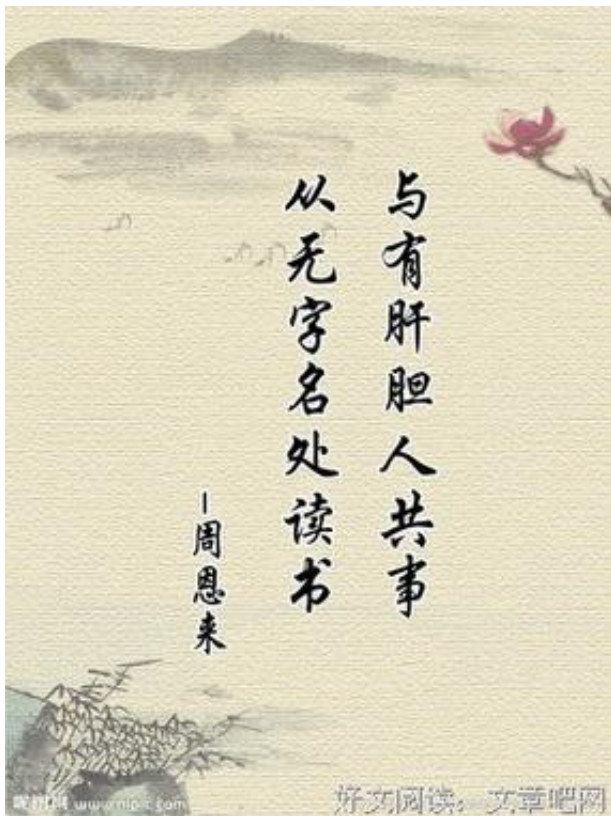 与有肝胆人共事
从无字名处读书
—周恩来
昵图网 www.nipic.com
好文阅读。文章吧网